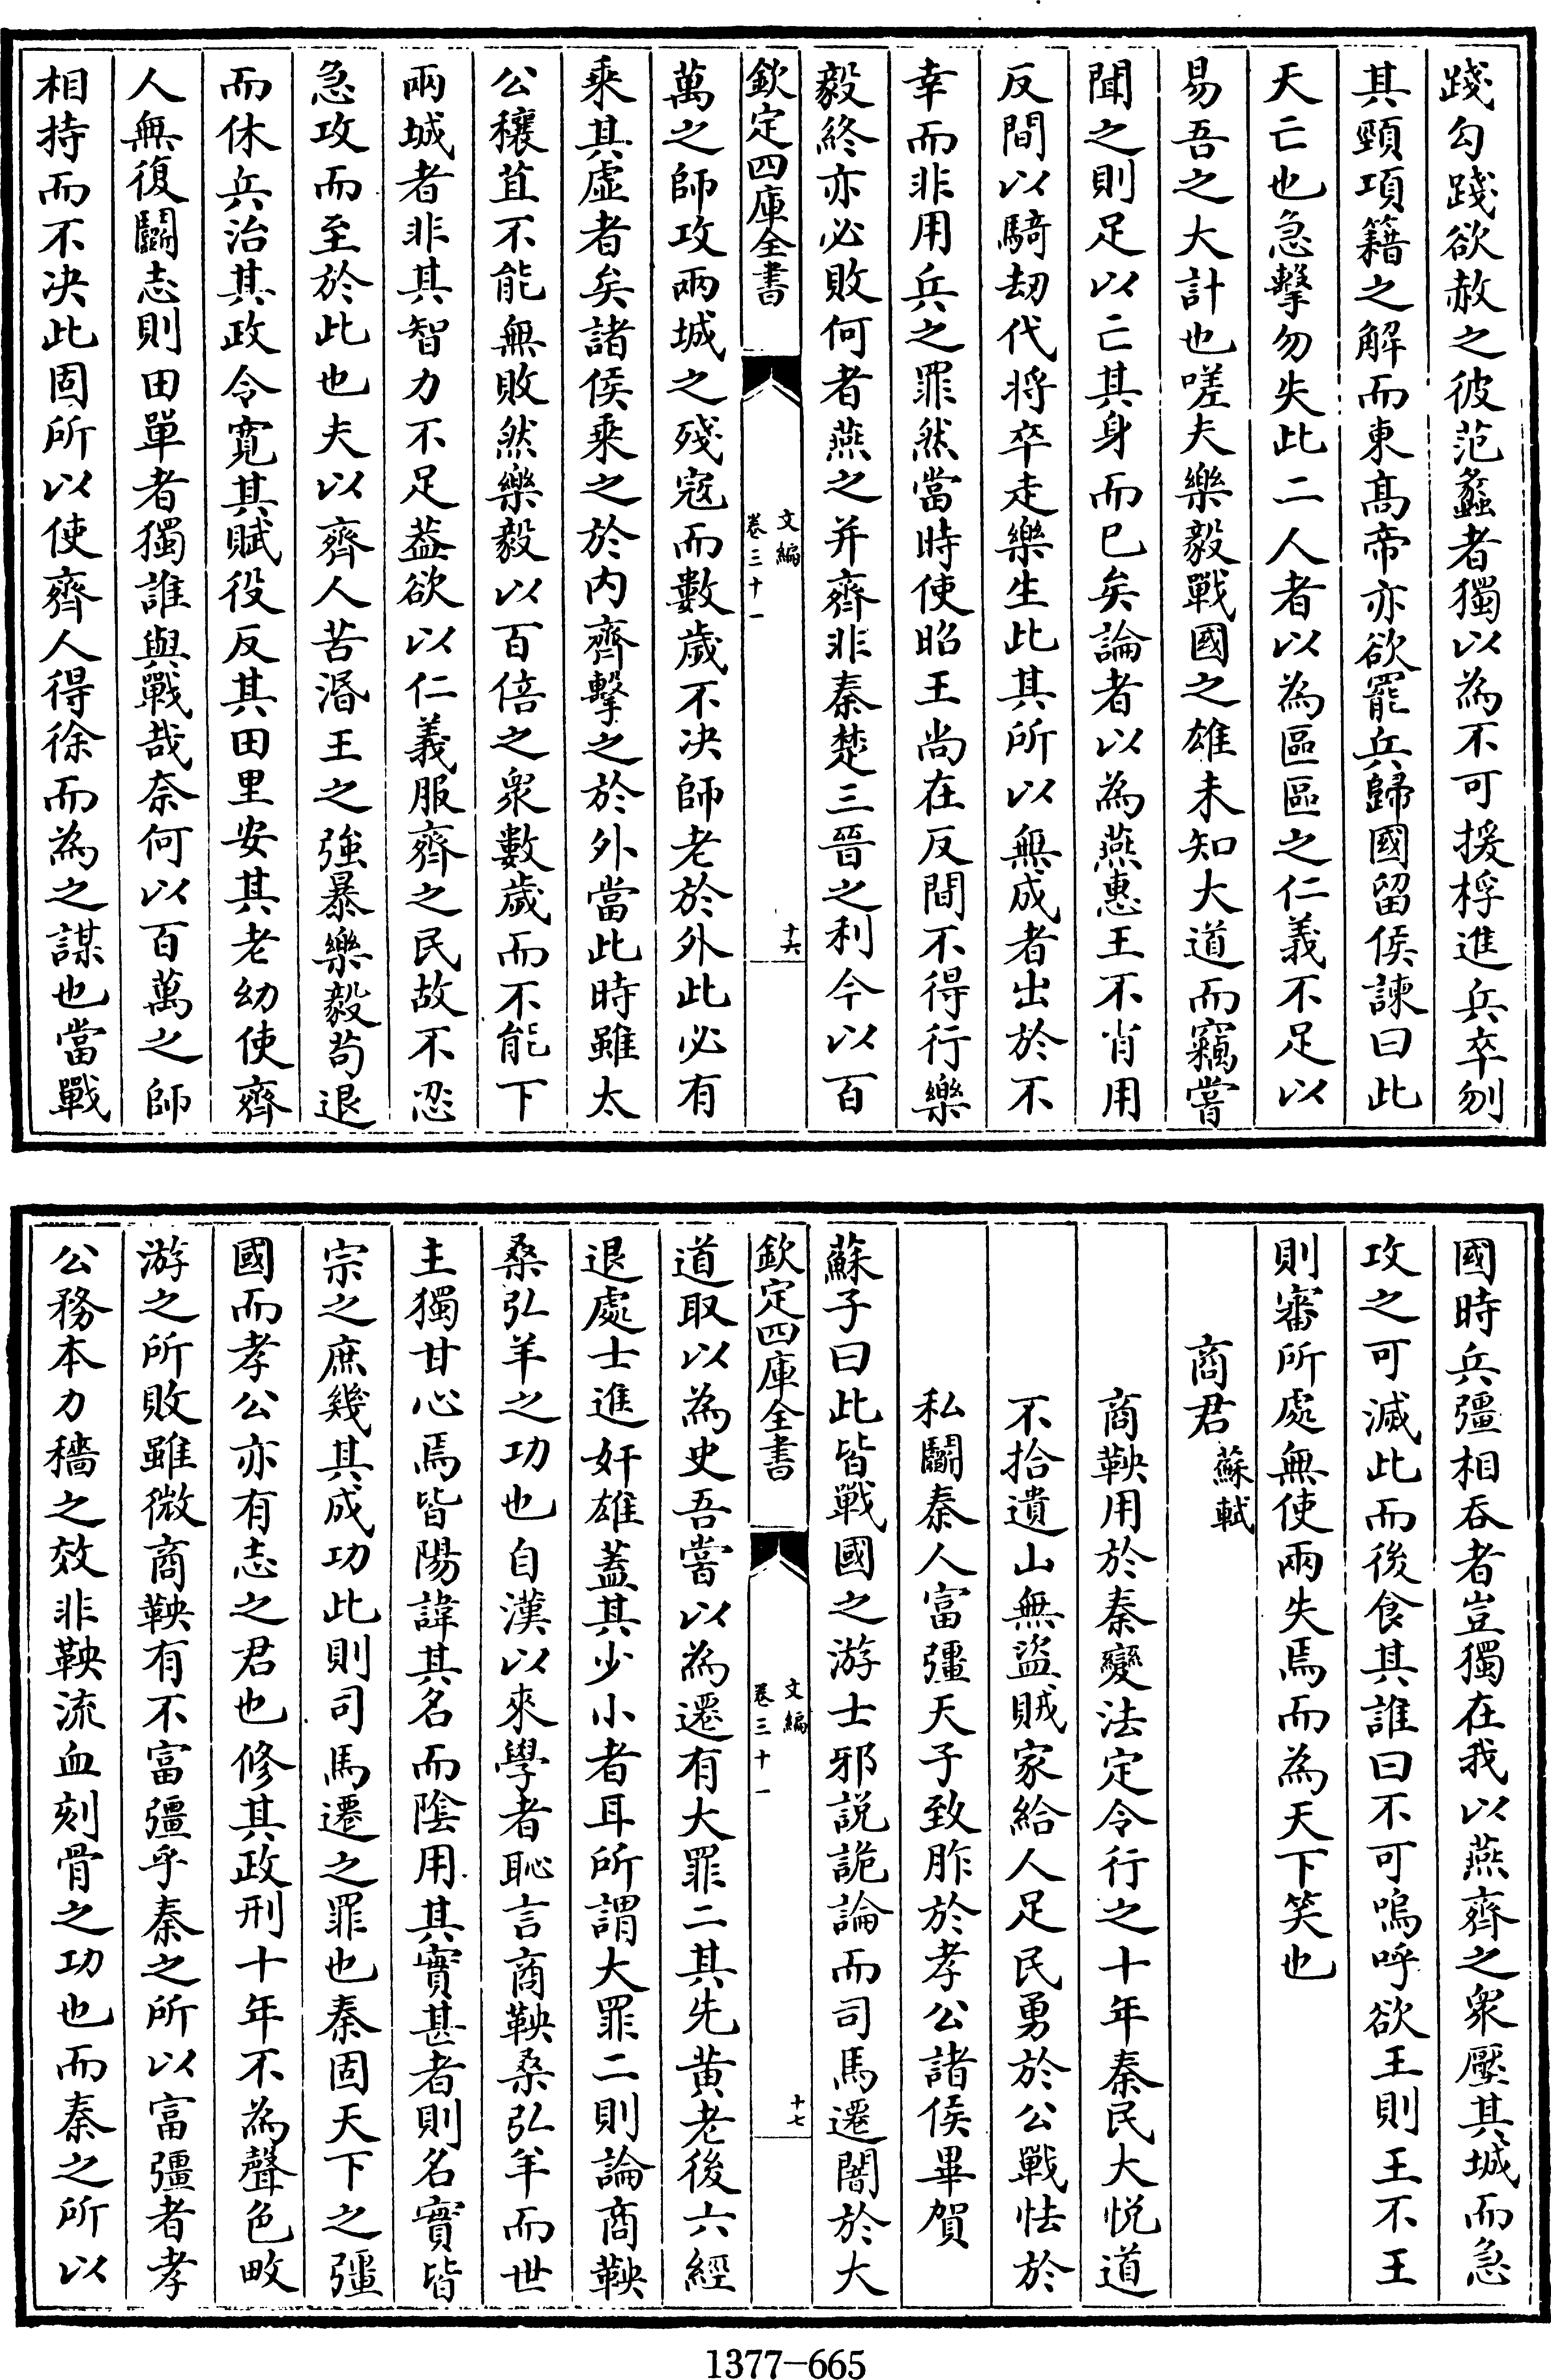 踐勾踐欲赦之彼范蠡者獨以為不可援桴進兵卒刎
其頸項籍之解而東髙帝亦欲罷兵歸國留侯諫曰此
天亡也急擊勿失此二人者以為區區之仁義不足以
易吾之大計也嗟夫樂毅戰國之雄未知大道而竊嘗
聞之則足以亡其身而已矣論者以為燕惠王不肖用
反間以騎刼代将卒走樂生此其所以無成者出於不
幸而非用兵之罪然當時使昭王尚在反間不得行樂
毅終亦必敗何者燕之并齊非秦楚三晉之利今以百
欽定四庫全書
文編
卷三十一
十六
萬之師攻兩城之殘寇而數歲不決師老於外此必有
乘其虛者矣諸侯乘之於内齊擊之於外當此時雖太
公穰苴不能無敗然樂毅以百倍之衆數歲而不能下
兩城者非其智力不足葢欲以仁義服齊之民故不忍
急攻而至於此也夫以齊人苦湣王之強暴樂毅茍退
而休兵治其政令寛其賦役反其田里安其老幼使齊
人無復鬬志則田單者獨誰與戰哉奈何以百萬之師
相持而不決此固所以使齊人得徐而為之謀也當戰
國時兵彊相吞者豈獨在我以燕齊之衆壓其城而急
攻之可滅此而後食其誰曰不可嗚呼欲王則王不王
則審所處無使兩失焉而為天下笑也
商君 蘇軾
商鞅用於秦變法定令行之十年秦民大悅道
不拾遺山無盜賊家給人足民勇於公戰怯於
私鬬秦人富彊天子致胙於孝公諸侯畢賀
蘇子曰此皆戰國之游士邪說詭論而司馬遷闇於大
欽定四庫全書
文編
卷三十一
十七
道取以為史吾嘗以為遷有大罪二其先黄老後六經
退處士進奸雄蓋其少小者耳所謂大罪二則論商鞅
桑弘羊之功也自漢以來學者恥言商鞅桑弘羊而世
主獨甘心焉皆陽諱其名而陰用其實甚者則名實皆
宗之庶幾其成功此則司馬遷之罪也秦固天下之彊
國而孝公亦有志之君也修其政刑十年不為聲色畋
游之所敗雖微商鞅有不富彊乎秦之所以富彊者孝
公務本力穡之效非鞅流血刻骨之功也而秦之所以
1377-665